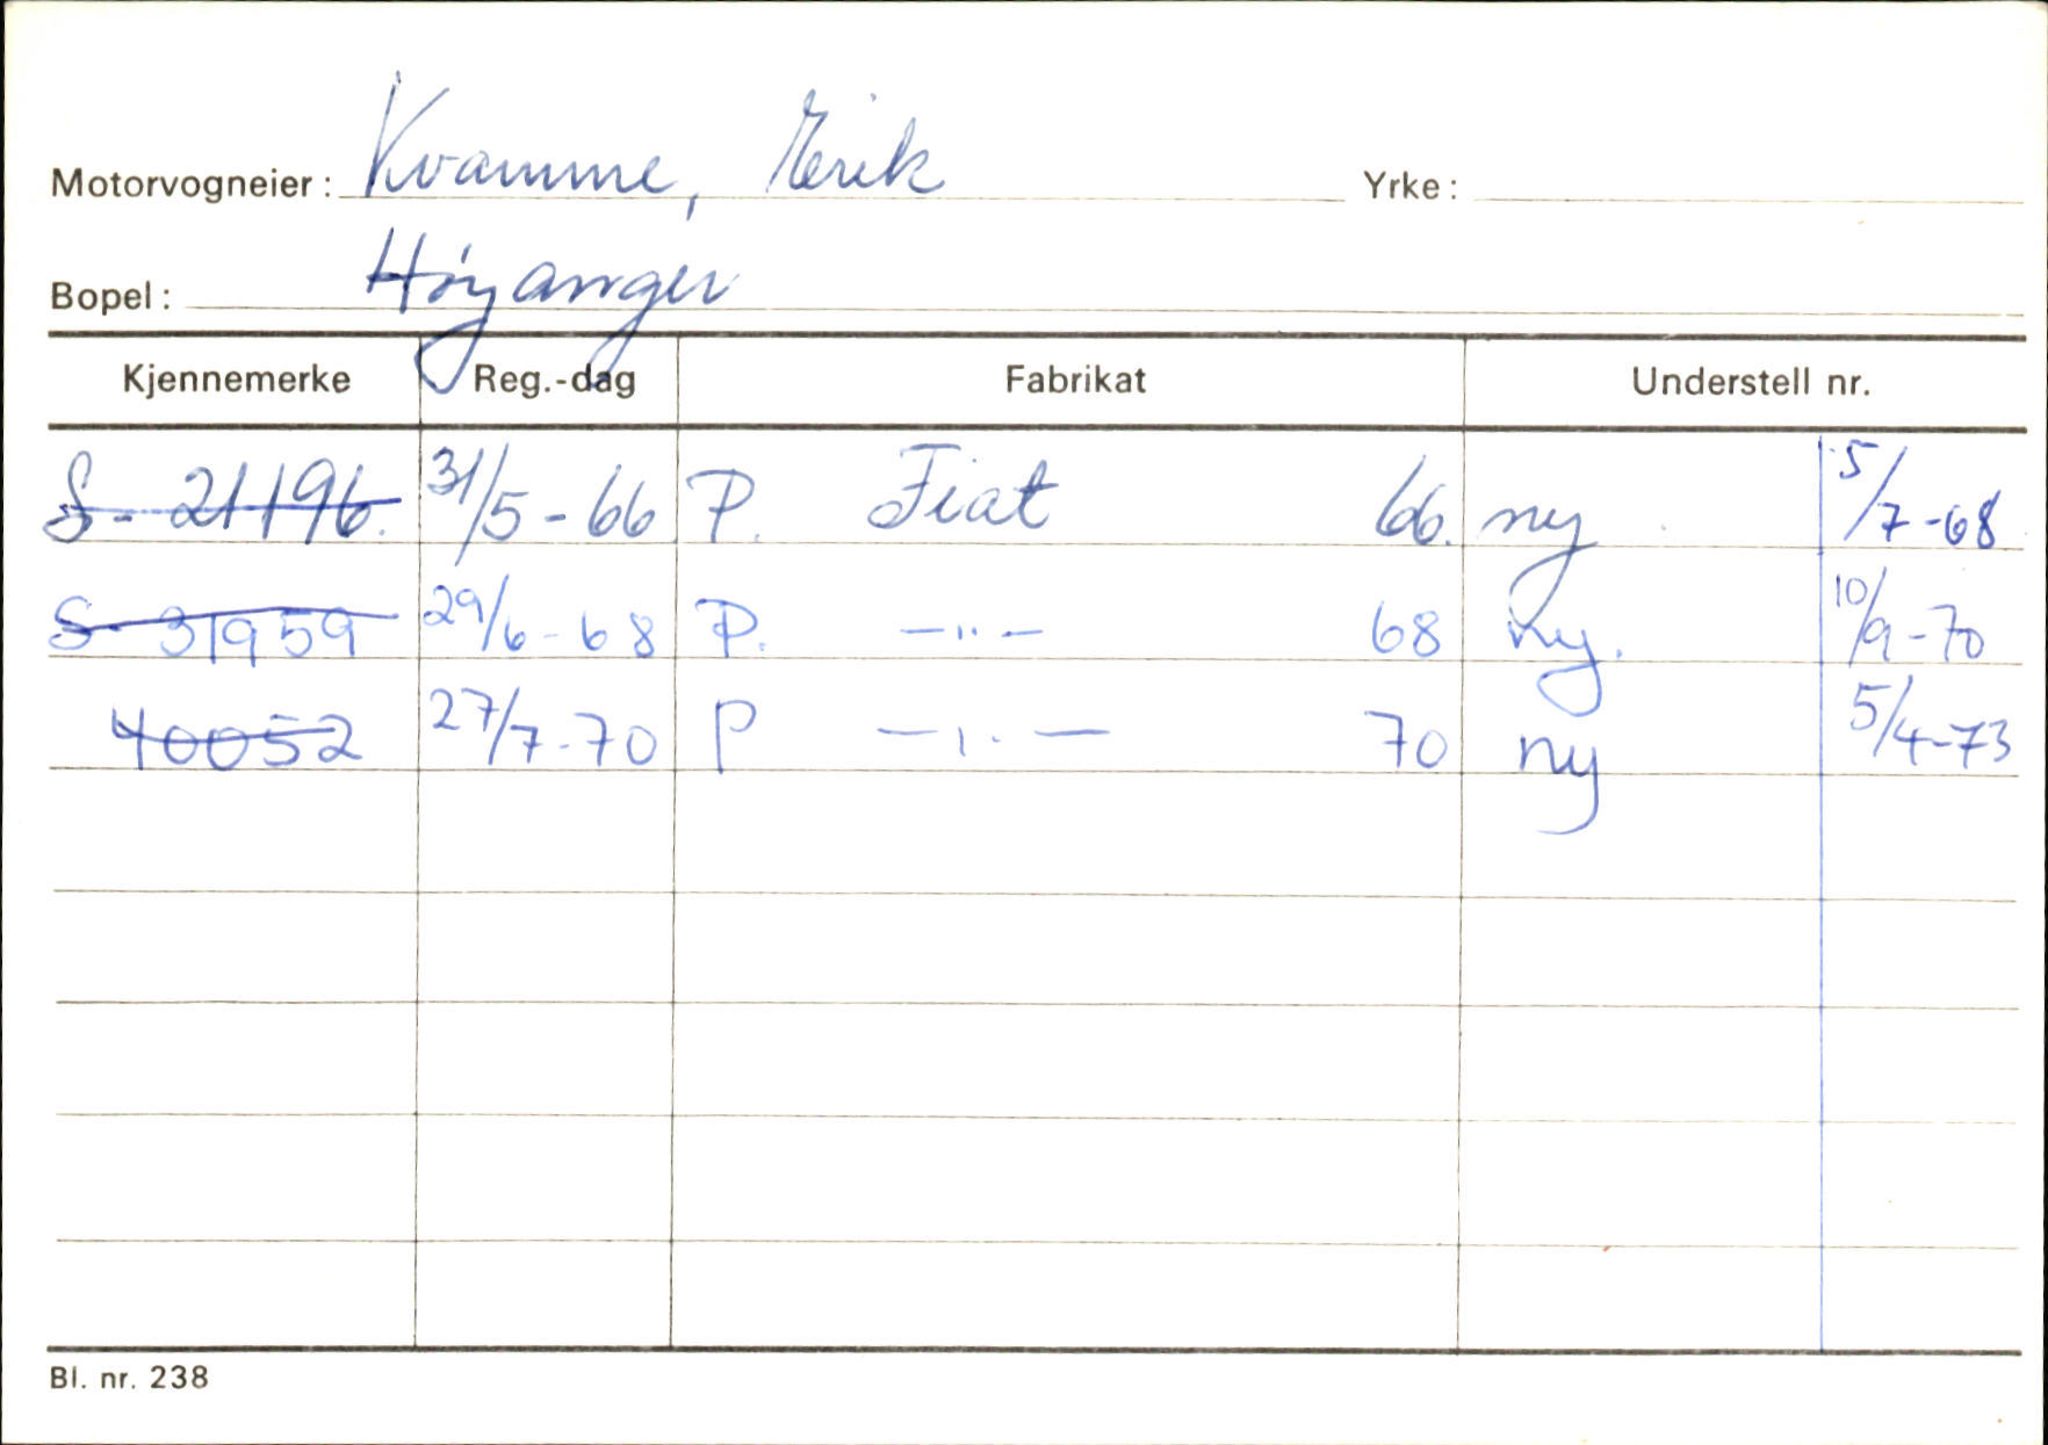 Motorvogneier: Kvamme, Erik Yrke:
Bopel: Høyanger
Kjennemerke Reg.-dag Fabrikat Understell nr.
S- 21196. 31/5-66 P. Fiat 66. ny 5/7-68
S- 31959 29/6-68 P. —"— 68 ny. 10/9-70
40052 27/7-70 P —"— 70 ny 5/4-73
Bl. nr. 238